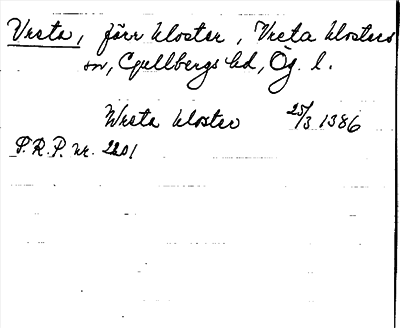 Vreta, förr kloster, Vreta klosters
sn, Gullbergs hd, Ög. l.
Wreta kloster 25/3 1386
P.R.P. nr. 2201